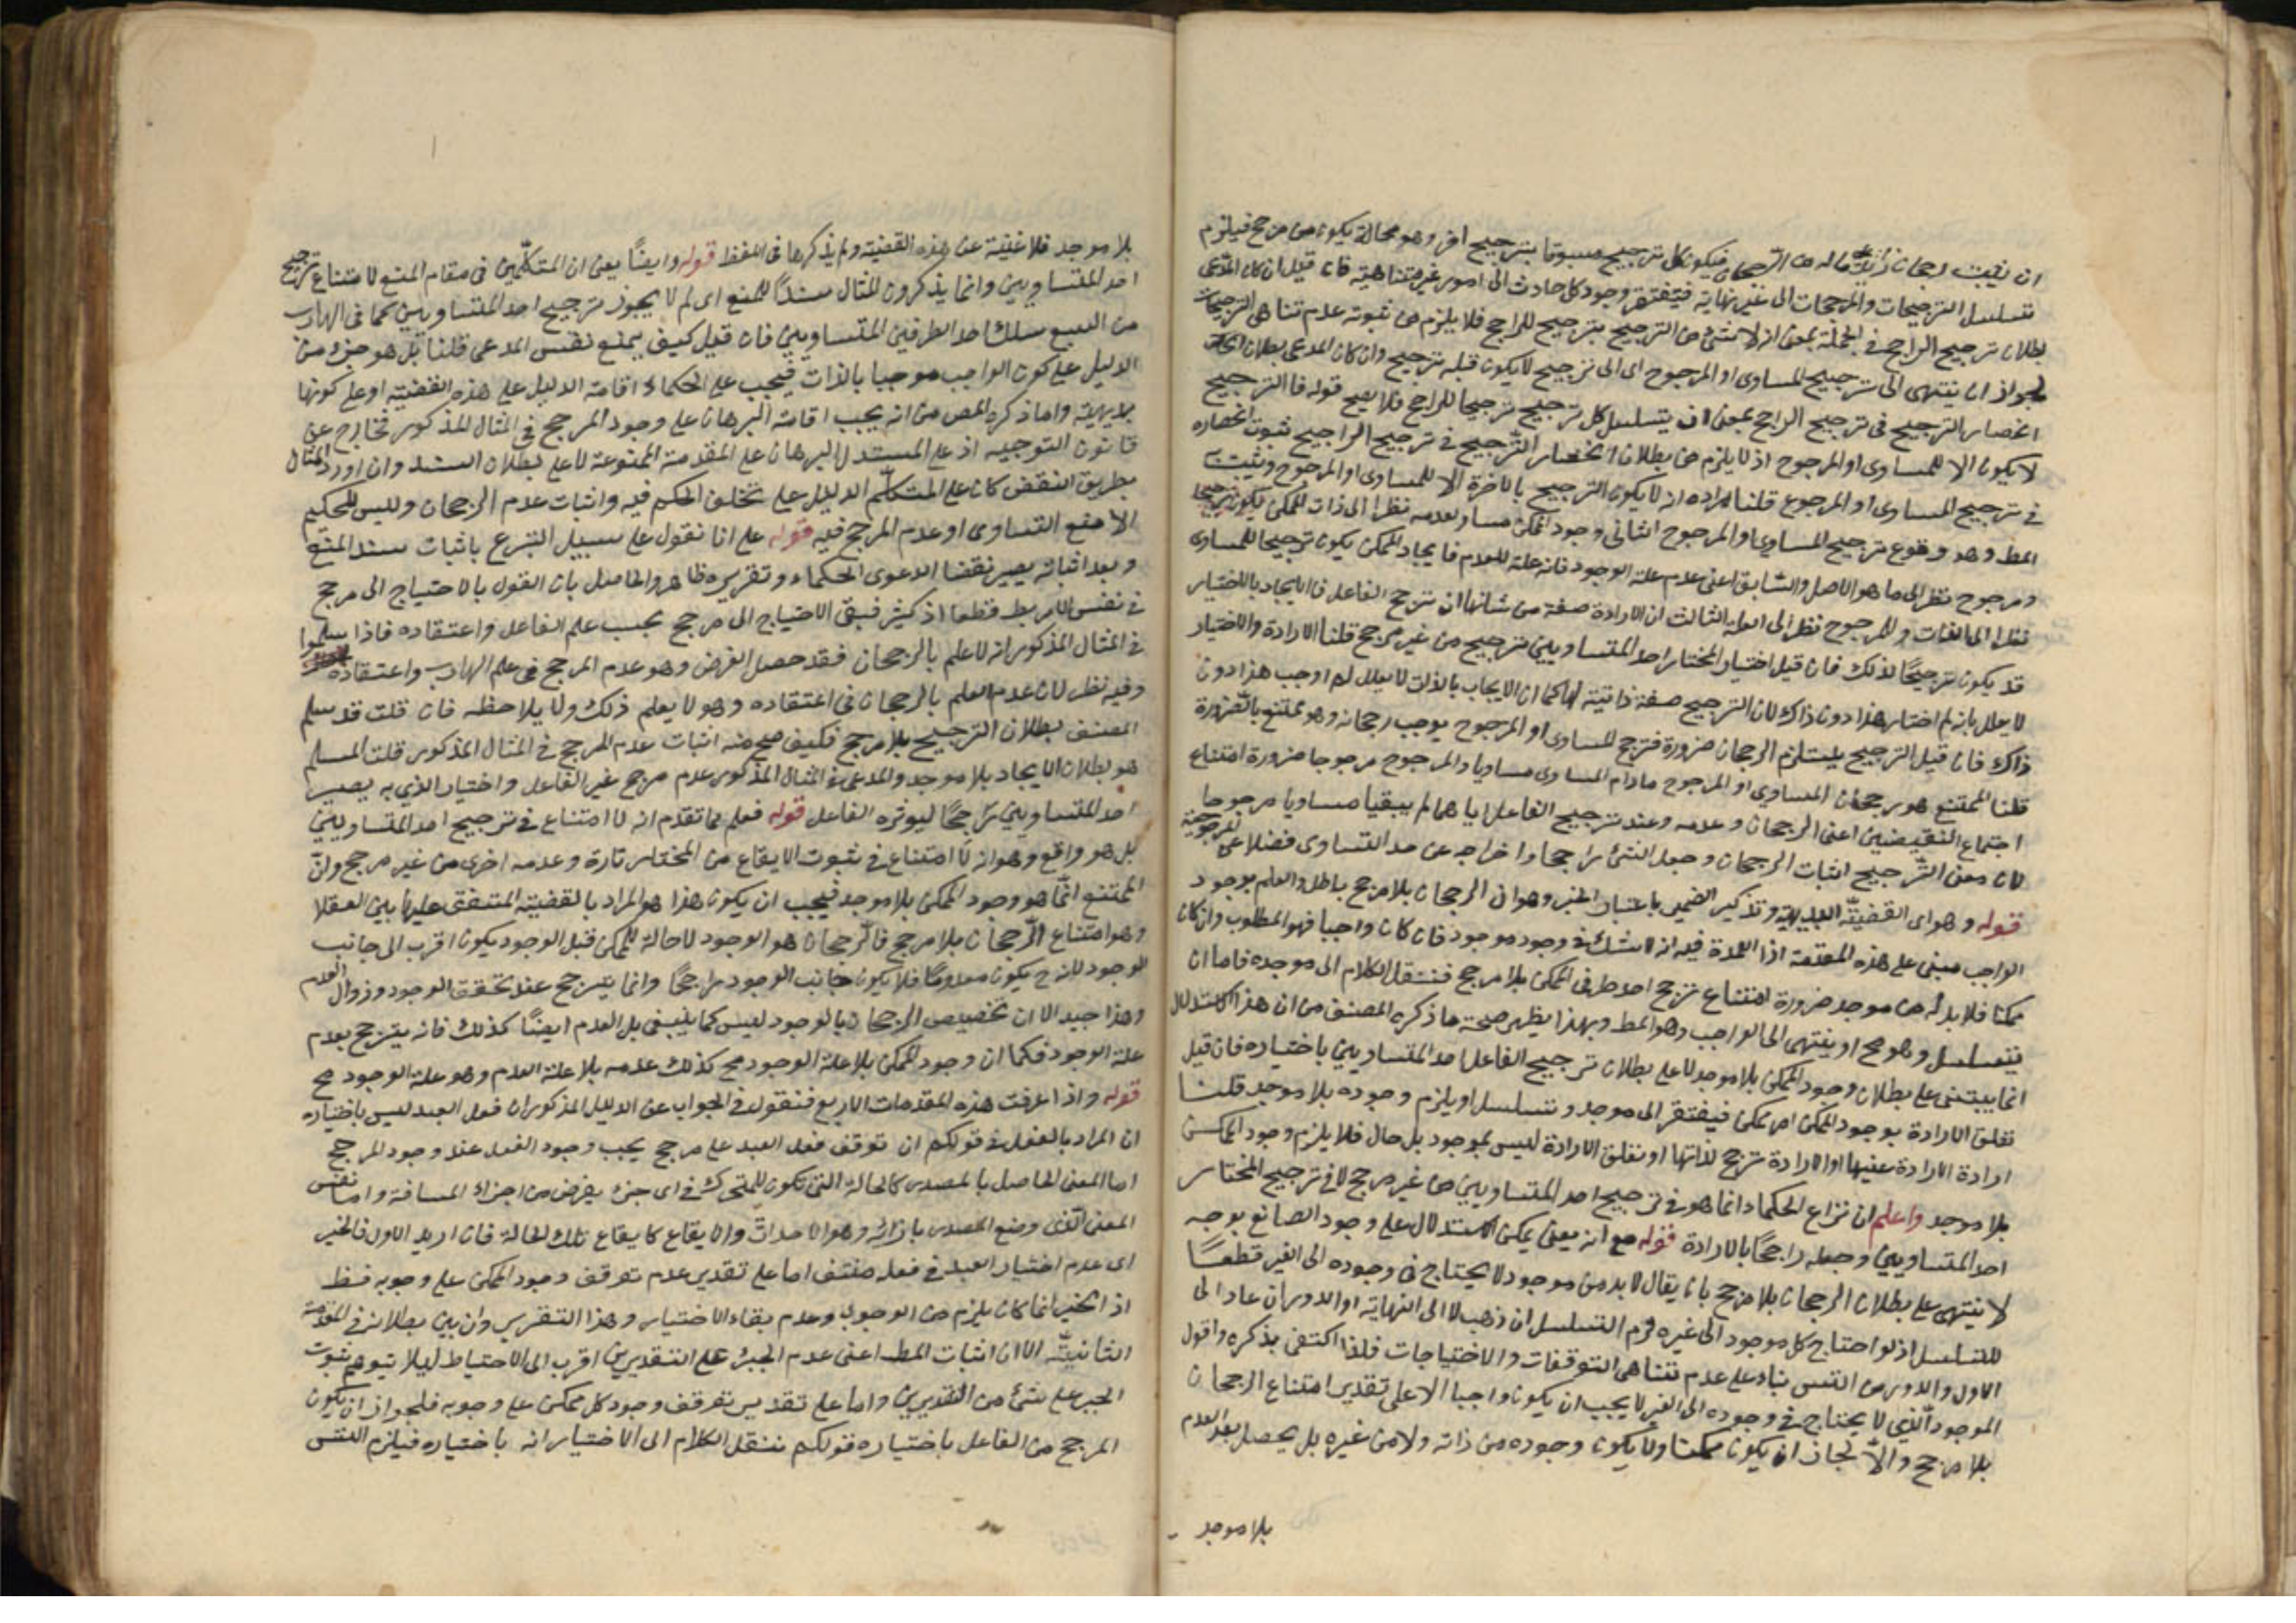 ان يثبت رجحانا زائدا على ماله من الرجحان فيكون كل ترجيح مسبوقا بترجيح اخر وهو محالة يكون من مرجح فيلزم
تسلسل الترجيحات والمرجحات الى غير نهاية فيفتقر وجود كل حادث الى امور غير متناهية فان قيل ان كان المدعى
بطلان ترجيح الراجح في الجملة بمعنى انه لا شئ من الترجيح بترجيح للراجح فلا يلزم من ثبوته عدم تناهى الترجيحات
لجواز ان ينتهى الى ترجيح المساوى او المرجوح اى الى ترجيح لا يكون قبله ترجيح وان كان المدعى بطلان
انحصار الترجيح في ترجيح الراجح بمعنى ان يتسلسل كل ترجيح ترجيحا للراجح فلا يصح قوله فالترجيح
لا يكون الا للمساوى او المرجوح اذ لا يلزم من بطلان انحصار الترجيح في ترجيح الراجح ثبوت انحصاره
في ترجيح المساوى او المرجوح قلنا المراد انه لا يكون الترجيح بالاخرة الا للمساوى او المرجوح ويثبت
المط وهو وقوع ترجيح المساوى او المرجوح الثانى وجود الممكن مساو لعدمه نظرا الى ذات الممكن فيكون ترجيحا
ومرجوح نظرا الى ما هو الاصل والسابق اعنى عدم علة الوجود فانه علة للعدم فايجاد الممكن يكون ترجيحا للمساوى
نظرا الى الذات وللمرجوح نظرا الى العلة الثالث ان الارادة صفة من شانها ان ترجح الفاعل فالايجاد بالاختيار
قد يكون ترجيحا لذلك فان قيل اختيار المختار احد المتساويين ترجيح من غير مرجح قلنا الارادة والاختيار
لا يعلل بانه لم اختار هذا دون ذاك لان الترجيح صفة ذاتية لها كما ان الايجاب بالذات لا يعلل لم اوجب هذا دون
ذاك فان قيل الترجيح يستلزم الرجحان ضرورة فترجح المساوى او المرجوح يوجب رجحانه وهو ممتنع بالضرورة
قلنا الممتنع هو رجحان المساوى او المرجوح مادام المساوى مساويا والمرجوح مرجوحا ضرورة امتناع
اجتماع النقيضين اعنى الرجحان وعدمه وعند ترجيح الفاعل اياهما لم يبقيا مساويا مرجوحا
لان معنى الترجيح اثبات الرجحان وجعل الشئ راجحا واخراجه عن حد التساوى فضلا عن المرجوحية
قوله وهو اى القضية البديهية وتذكير الضمير باعتبار الخبر وهو ان الرجحان بلا مرجح باطل والعلم بوجود
الواجب مبنى على هذه المقدمة اذ العمدة فيه انه لا شك في وجود موجود فان كان واجبا فهو المطلوب وان كان
ممكنا فلا بد له من موجد ضرورة امتناع ترجح احد طرفى الممكن بلا مرجح فننقل الكلام الى موجده فاما ان
يتسلسل وهو مح او ينتهى الى الواجب وهو المط وبهذا يظهر صحة ما ذكره المصنف من ان هذا الاستدلال
انما يبتنى على بطلان وجود الممكن بلا موجد لا على بطلان ترجيح الفاعل احد المتساويين باختياره فان قيل
تعلق الارادة بوجود الممكن امر ممكن فيفتقر الى موجد ويتسلسل او يلزم وجوده بلا موجد قلنا
ارادة الارادة عينها او الارادة ترجح لذاتها او تعلق الارادة ليس بموجود بل حال فلا يلزم وجود الممكن
بلا موجد واعلم ان نزاع الحكماء انما هو في ترجيح احد المتساويين من غير مرجح لا في ترجيح المختار
احد المتساويين وجعله راجحا بالارادة قوله مع انه يعنى يمكن الاستدلال على وجود الصانع بوجه
لا يبتنى على بطلان الرجحان بلا مرجح بان يقال لا بد من موجود لا يحتاج في وجوده الى الغير قطعا
للتسلسل اذ لو احتاج كل موجود الى غيره لزم التسلسل ان ذهب لا الى النهاية او الدور ان عاد الى
الاول والدور من التس بناء على عدم تناهى التوقفات والاحتياجات فلذا اكتفى بذكره واقول
الموجود الذي لا يحتاج في وجوده الى الغير لا يجب ان يكون واجبا الا على تقدير امتناع الرجحان
بلا مرجح والا لجاز ان يكون ممكنا ولا يكون وجوده من ذاته ولا من غيره بل يحصل بعد العدم
بلا موجد
بلا موجد فلا غنية عن هذه القضية ولم يذكرها في اللفظ قوله وايضا يعنى ان المتكلمين في مقام المنع لامتناع ترجيح
احد المتساويين وانما يذكرون المثال سندا للمنع اى لم لا يجوز ترجيح احد المتساويين كما في الهارب
من السبع سلك احد الطرفين المتساويين فان قيل كيف يمنع نفس المدعى قلنا بل هو جزء من
الدليل على كون الواجب موجبا بالذات فيجب على الحكماء اقامة الدليل على هذه القضية او على كونها
بديهية واما ذكره المص من انه يجب اقامة البرهان على وجود المرجح في المثال المذكور فخارج عن
قانون التوجيه اذ على المستدل البرهان على المقدمة الممنوعة لا على بطلان السند وان اورد المثال
بطريق النقض كان على المتكلم الدليل على تخلف الحكم فيه واثبات عدم الرجحان وليس للحكيم
الا منع التساوى او عدم المرجح فيه قوله على انا نقول على سبيل التبرع باثبات سند المنع
وبعد اثباته يصير نقضا لدعوى الحكماء وتقريره ظاهر والحاصل بان القول بالاحتياج الى مرجح
في نفس الامر بط قطعا اذ كثير فبقى الاحتياج الى مرجح بحسب علم الفاعل واعتقاده فاذا سلموا
في المثال المذكور انه لا علم بالرجحان فقد حصل الغرض وهو عدم المرجح في علم الهارب واعتقاده
وفيه نظر لان عدم العلم بالرجحان في اعتقاده وهو لا يعلم ذلك ولا يلاحظه فان قلت قد سلم
المصنف بطلان الترجيح بلا مرجح فكيف صح منه اثبات عدم المرجح في المثال المذكور قلت المسلم
هو بطلان الايجاد بلا موجد والمدعى في المثال المذكور عدم مرجح غير الفاعل واختيار الذي به يصير
احد المتساويين راجحا ليوثره الفاعل قوله فعلم مما تقدم انه لا امتناع في ترجيح احد المتساويين
بل هو واقع وهو انه لا امتناع في ثبوت الايقاع من المختار تارة وعدمه اخرى من غير مرجح وان
الممتنع انما هو وجود الممكن بلا موجد فيجب ان يكون هذا هو المراد بالقضية المتفق عليها بين العقلا
وهو امتناع الرجحان بلا مرجح فالرجحان هو الوجود لا حالة للممكن قبل الوجود يكون اقرب الى جانب
الوجود لانه ح يكون معدوما فلا يكون جانب الوجود راجحا وانما يترجح عند تحقق الوجود وزوال العدم
وهذا جيد الا ان تخصيص الرجحان بالوجود ليس كما ينبغى بل العدم ايضا كذلك فانه يترجح بعدم
علة الوجود فكما ان وجود الممكن بلا علة الوجود مح كذلك عدمه بلا علة العدم وهو علة الوجود مح
قوله واذا عرفت هذه المقدمات الاربع فنقول في الجواب عن الدليل المذكور ان فعل العبد ليس باختياره
ان المراد بالفعل في قولكم ان توقف فعل العبد على مرجح يجب وجود الفعل عند وجود المرجح
اما المعنى الحاصل بالمصدر كالحالة التى تكون للمتحرك في اى جزء يفرض من اجزاء المسافة واما نفس
المعنى الذى وضع المصدر بازائه وهو الاحداث والايقاع كايقاع تلك الحالة فان اريد الاول فالخبر
اى عدم اختيار العبد في فعله منتف اما على تقدير عدم توقف وجود الممكن على وجوبه فظ
اذ الجبر انما كان يلزم من الوجوب وعدم بقاء الاختيار وهذا التقرير وان بين بطلانه في المقدمة
الثانية الا ان اثبات المط اعنى عدم الجبر على التقديرين اقرب الى الاحتياط ليلا يتوهم ثبوت
الجبر على شئ من التقديرين واما على تقدير توقف وجود كل ممكن على وجوبه فلجواز ان يكون
المرجح من الفاعل باختياره فقولكم ننقل الكلام الى الاختيار انه باختياره فيلزم التس